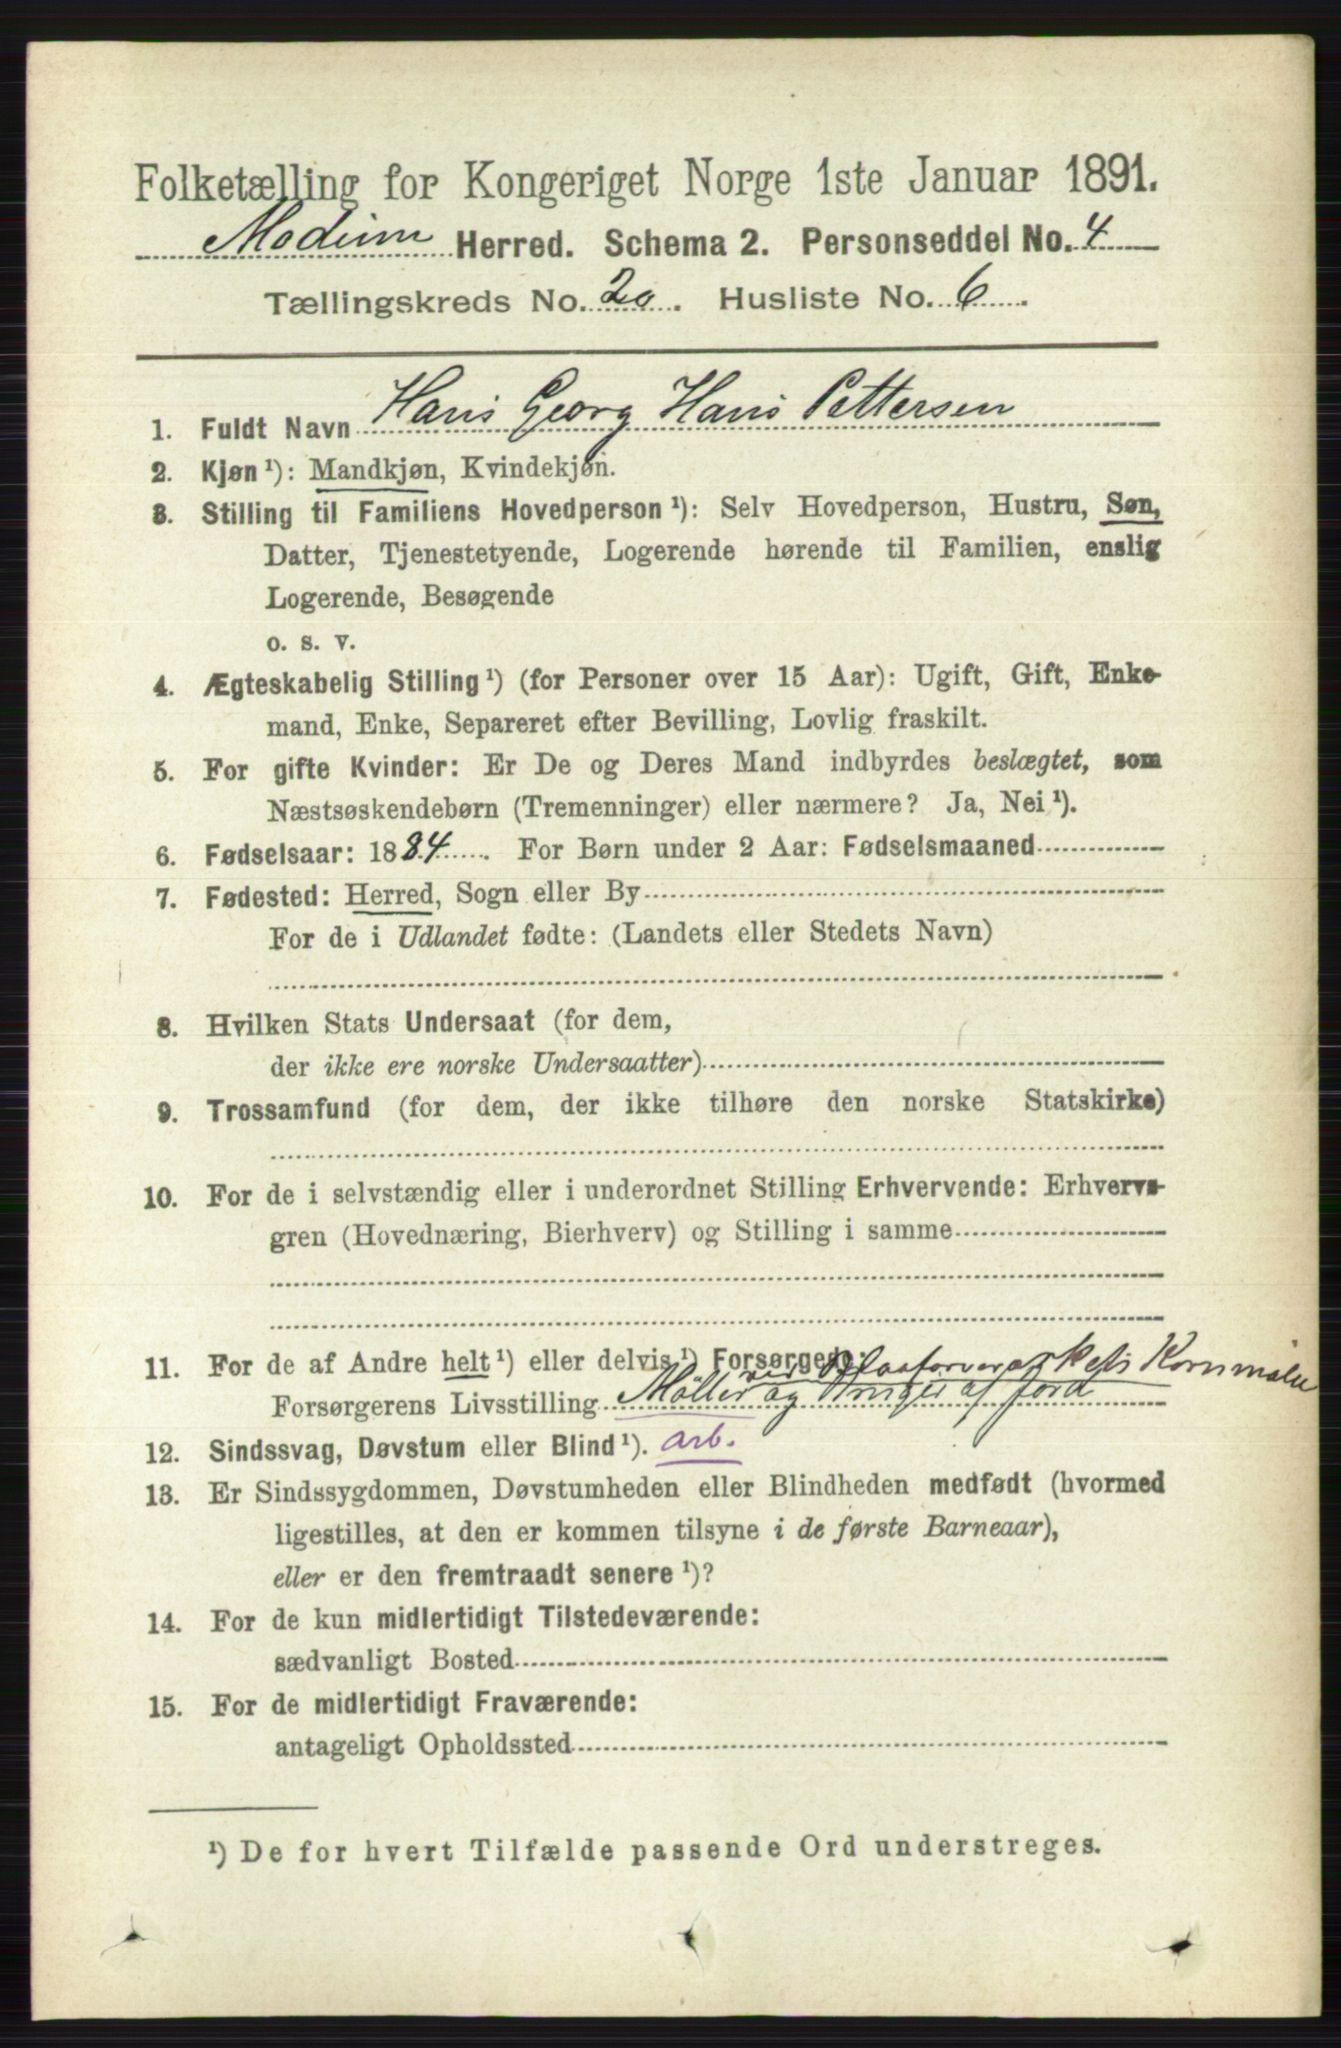 Folketælling for Kongeriget Norge 1ste Januar 1891.
Modum Herred. Schema 2. Personseddel No. 4
Tællingskreds No. 20. Husliste No. 6.
1. Fuldt Navn Hans Georg Hans Pettersen
2. Kjøn ¹): Mandkjøn, Kvindekjøn.
3. Stilling til Familiens Hovedperson ¹): Selv Hovedperson, Hustru, Søn,
Datter, Tjenestetyende, Logerende hørende til Familien, enslig
Logerende, Besøgende
o. s. v.
4. Ægteskabelig Stilling ¹) (for Personer over 15 Aar): Ugift, Gift, Enke-
mand, Enke, Separeret efter Bevilling, Lovlig fraskilt.
5. For gifte Kvinder: Er De og Deres Mand indbyrdes beslægtet, som
Næstsøskendebørn (Tremenninger) eller nærmere? Ja, Nei ¹).
6. Fødselsaar: 1884. For Børn under 2 Aar: Fødselsmaaned
7. Fødested: Herred, Sogn eller By
For de i Udlandet fødte: (Landets eller Stedets Navn)
8. Hvilken Stats Undersaat (for dem,
der ikke ere norske Undersaatter)
9. Trossamfund (for dem, der ikke tilhøre den norske Statskirke)
10. For de i selvstændig eller i underordnet Stilling Erhvervende: Erhvervs-
gren (Hovednæring, Bierhverv) og Stilling i samme
11. For de af Andre helt ¹) eller delvis ¹) Forsørgede: ved Blaafarveværkets Kornmølle
Forsørgerens Livsstilling Møller og Bruger af Jord
12. Sindssvag, Døvstum eller Blind ¹). arb.
13. Er Sindssygdommen, Døvstumheden eller Blindheden medfødt (hvormed
ligestilles, at den er kommen tilsyne i de første Barneaar),
eller er den fremtraadt senere ¹)?
14. For de kun midlertidigt Tilstedeværende:
sædvanligt Bosted
15. For de midlertidigt Fraværende:
antageligt Opholdssted
¹) De for hvert Tilfælde passende Ord understreges.